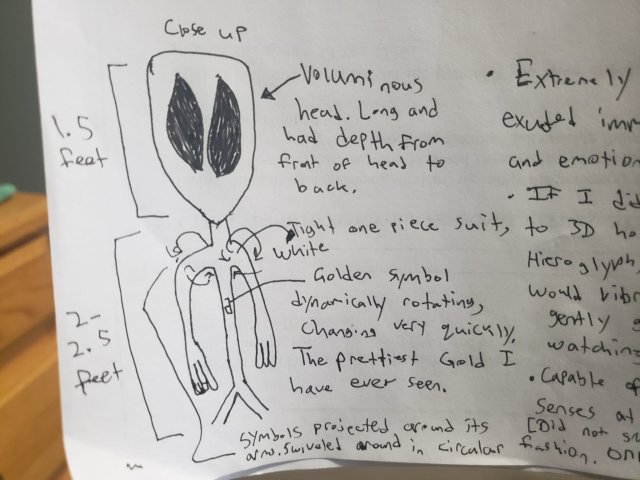 Close up
1.5
feet
Voluminous
head. Long and
had depth from
front of head to
back.
Tight one piece suit,
white
Golden symbol
dynamically rotating,
Changing very quickly.
The prettiest Gold I
have ever seen.
2-
2.5
feet
Symbols projected around its
arms. Swiveled around in circular fashion.
• Extremely
exuded
and emotion
• If I did
to 3D
Hieroglyph
would
gently
watching
• Capable of
Senses at
[Did not